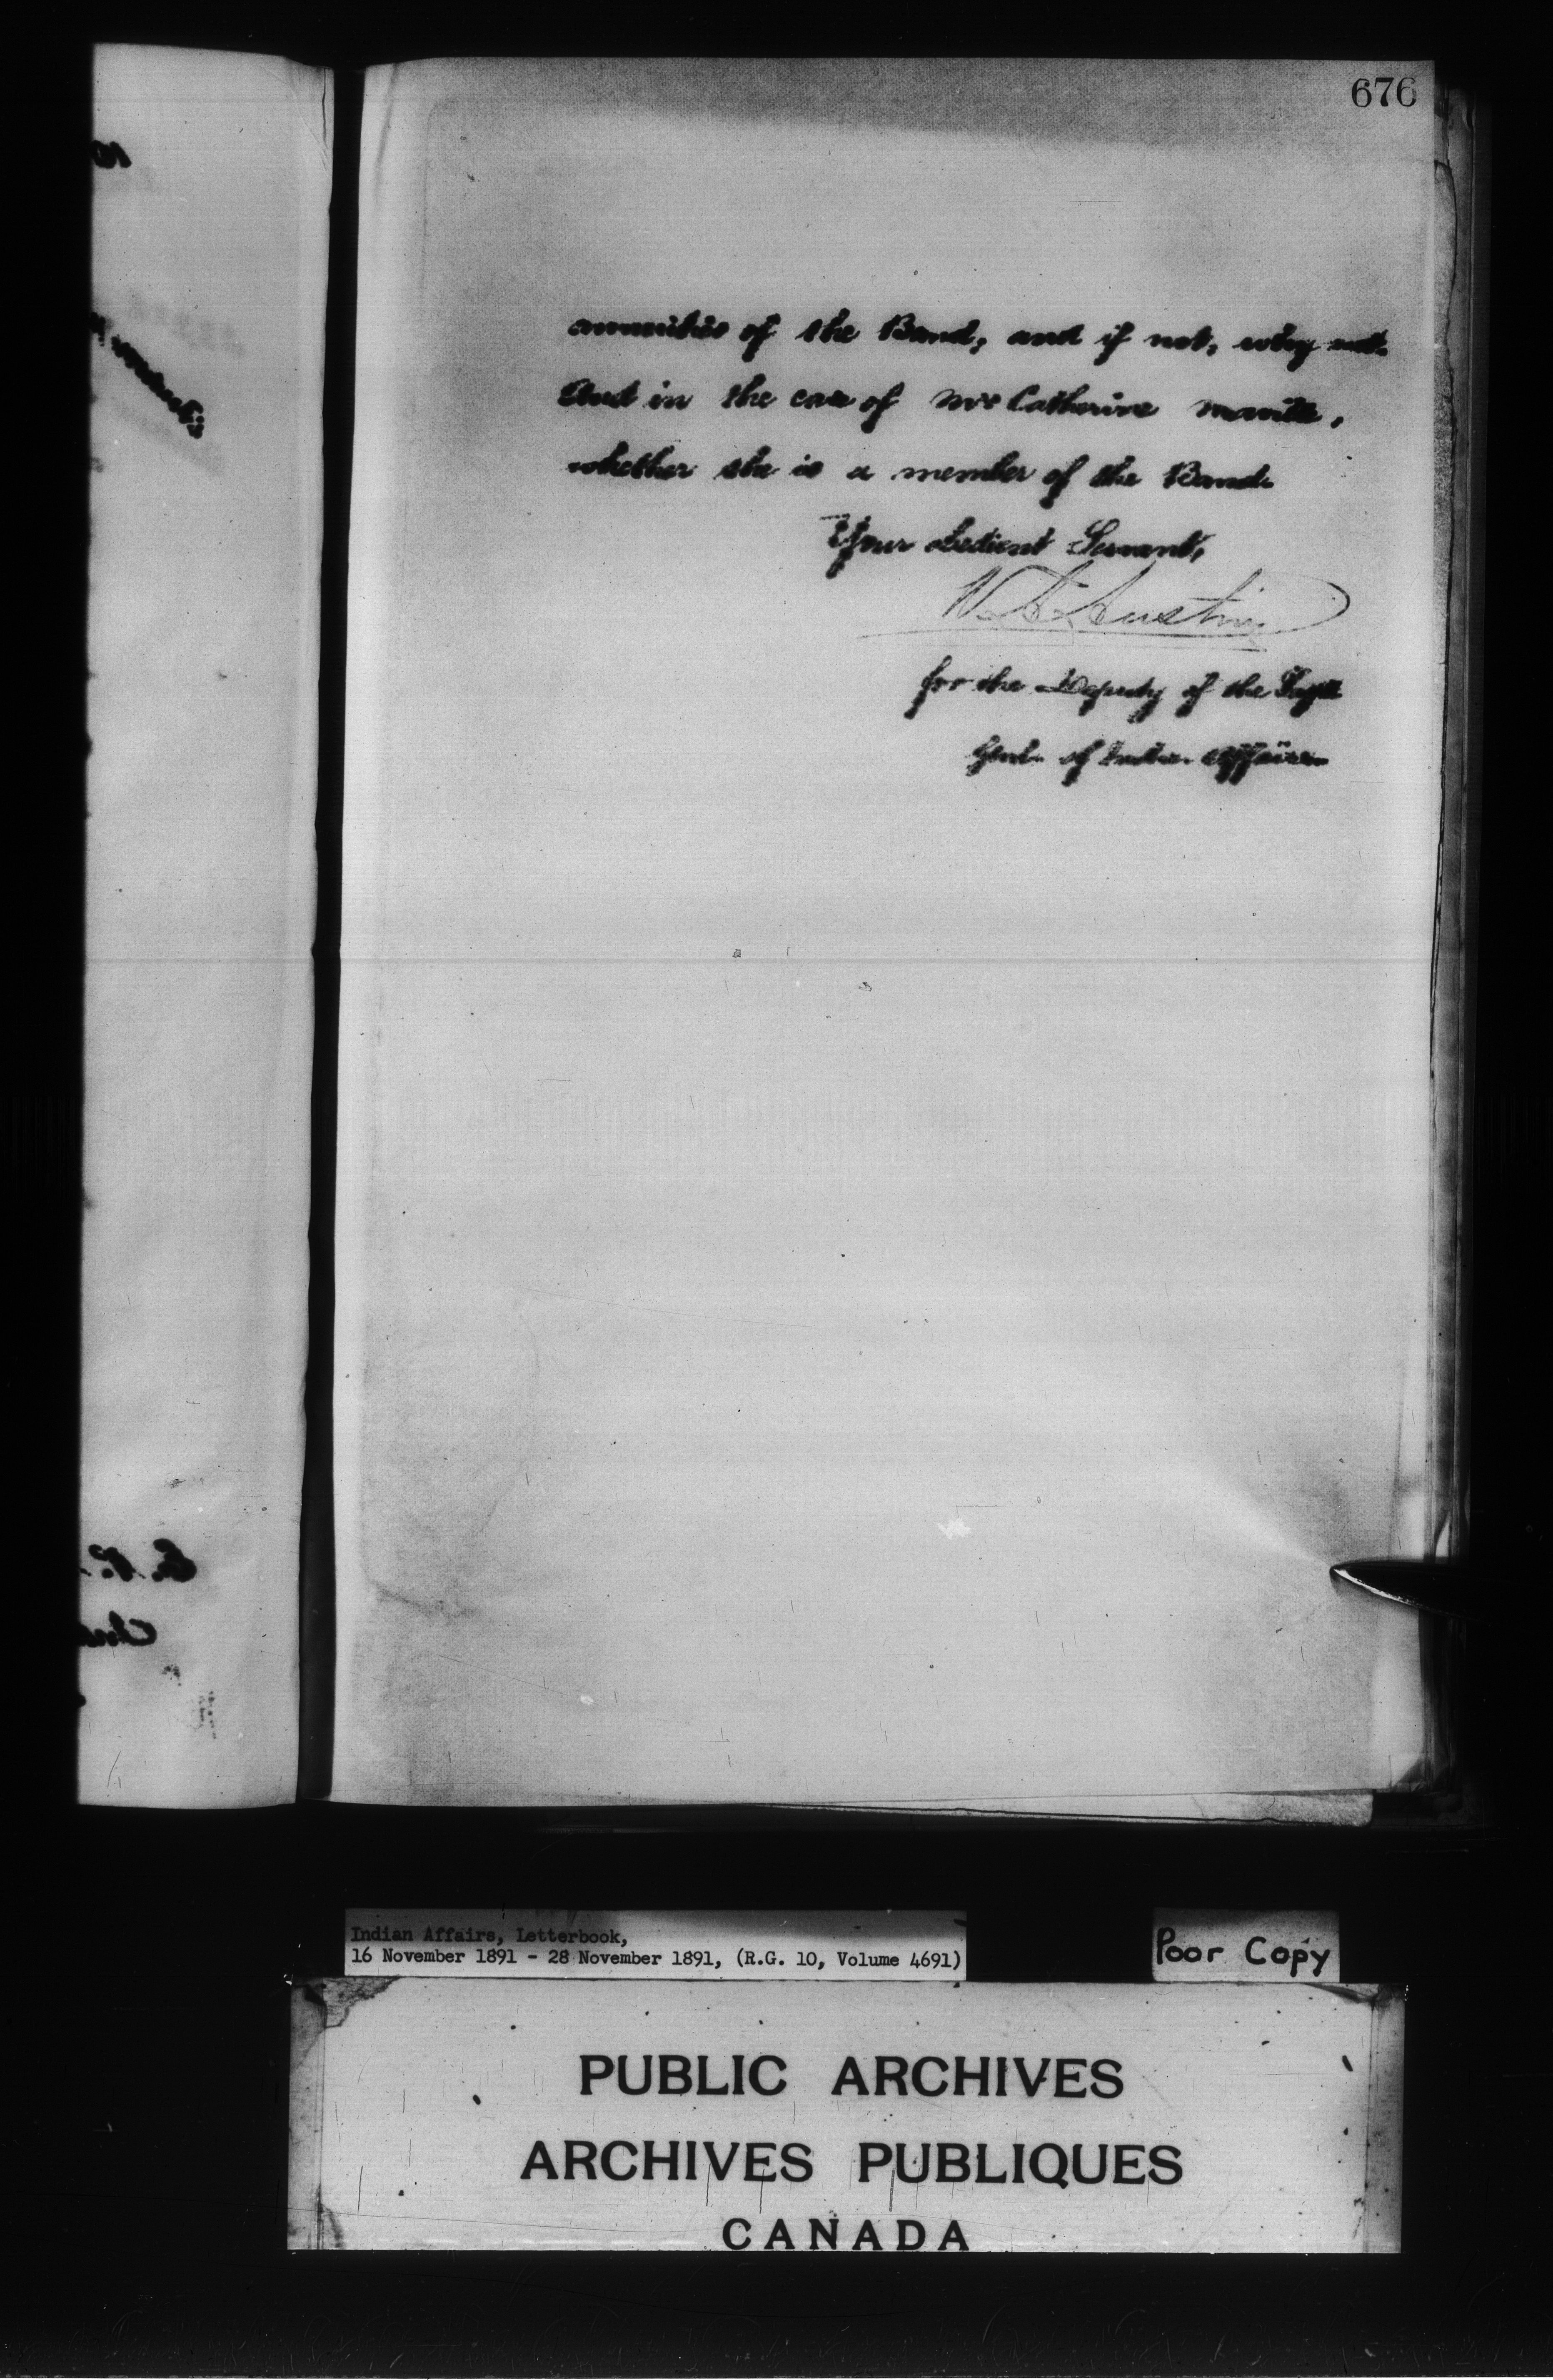 676
annuities of the Band, and if not, why not.
And in the case of Mrs Catherine
whether she is a member of the Band.
Your obedient Servant,
W. A. Austin
for the Deputy of the Supt
Genl. of Indian Affairs
Indian Affairs, Letterbook,
16 November 1891 - 28 November 1891, (R.G. 10, Volume 4691)
Poor Copy
PUBLIC ARCHIVES
ARCHIVES PUBLIQUES
CANADA